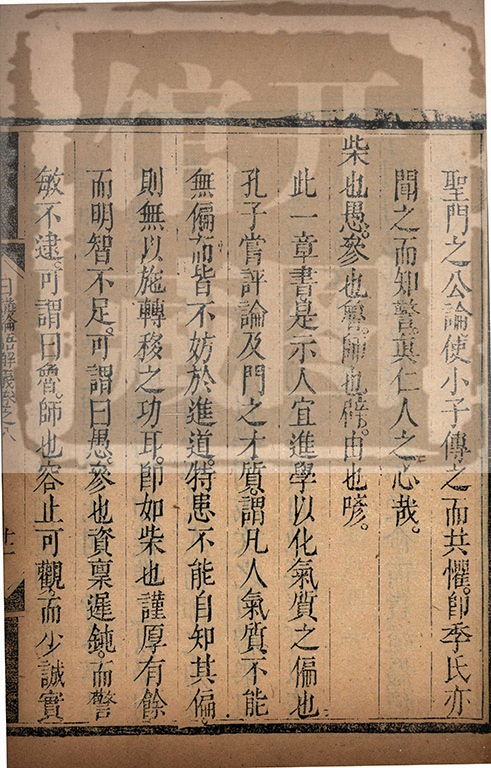 聖門之公論使小子傳之而共懼。即季氏亦
聞之而知警。真仁人之心哉。
柴也愚。參也魯。師也辟。由也喭。
此一章書是示人宜進學以化氣質之偏也
孔子嘗評論及門之才質。謂凡人氣質。不能
無偏而皆不妨於進道。特患不能自知其偏。
則無以施轉移之功耳。即如柴也謹厚有餘
而明智不足。可謂曰愚。參也資稟遲鈍。而警
敏不逮。可謂曰魯。師也容止可觀。而少誠實
日講論語解義卷之八
十一